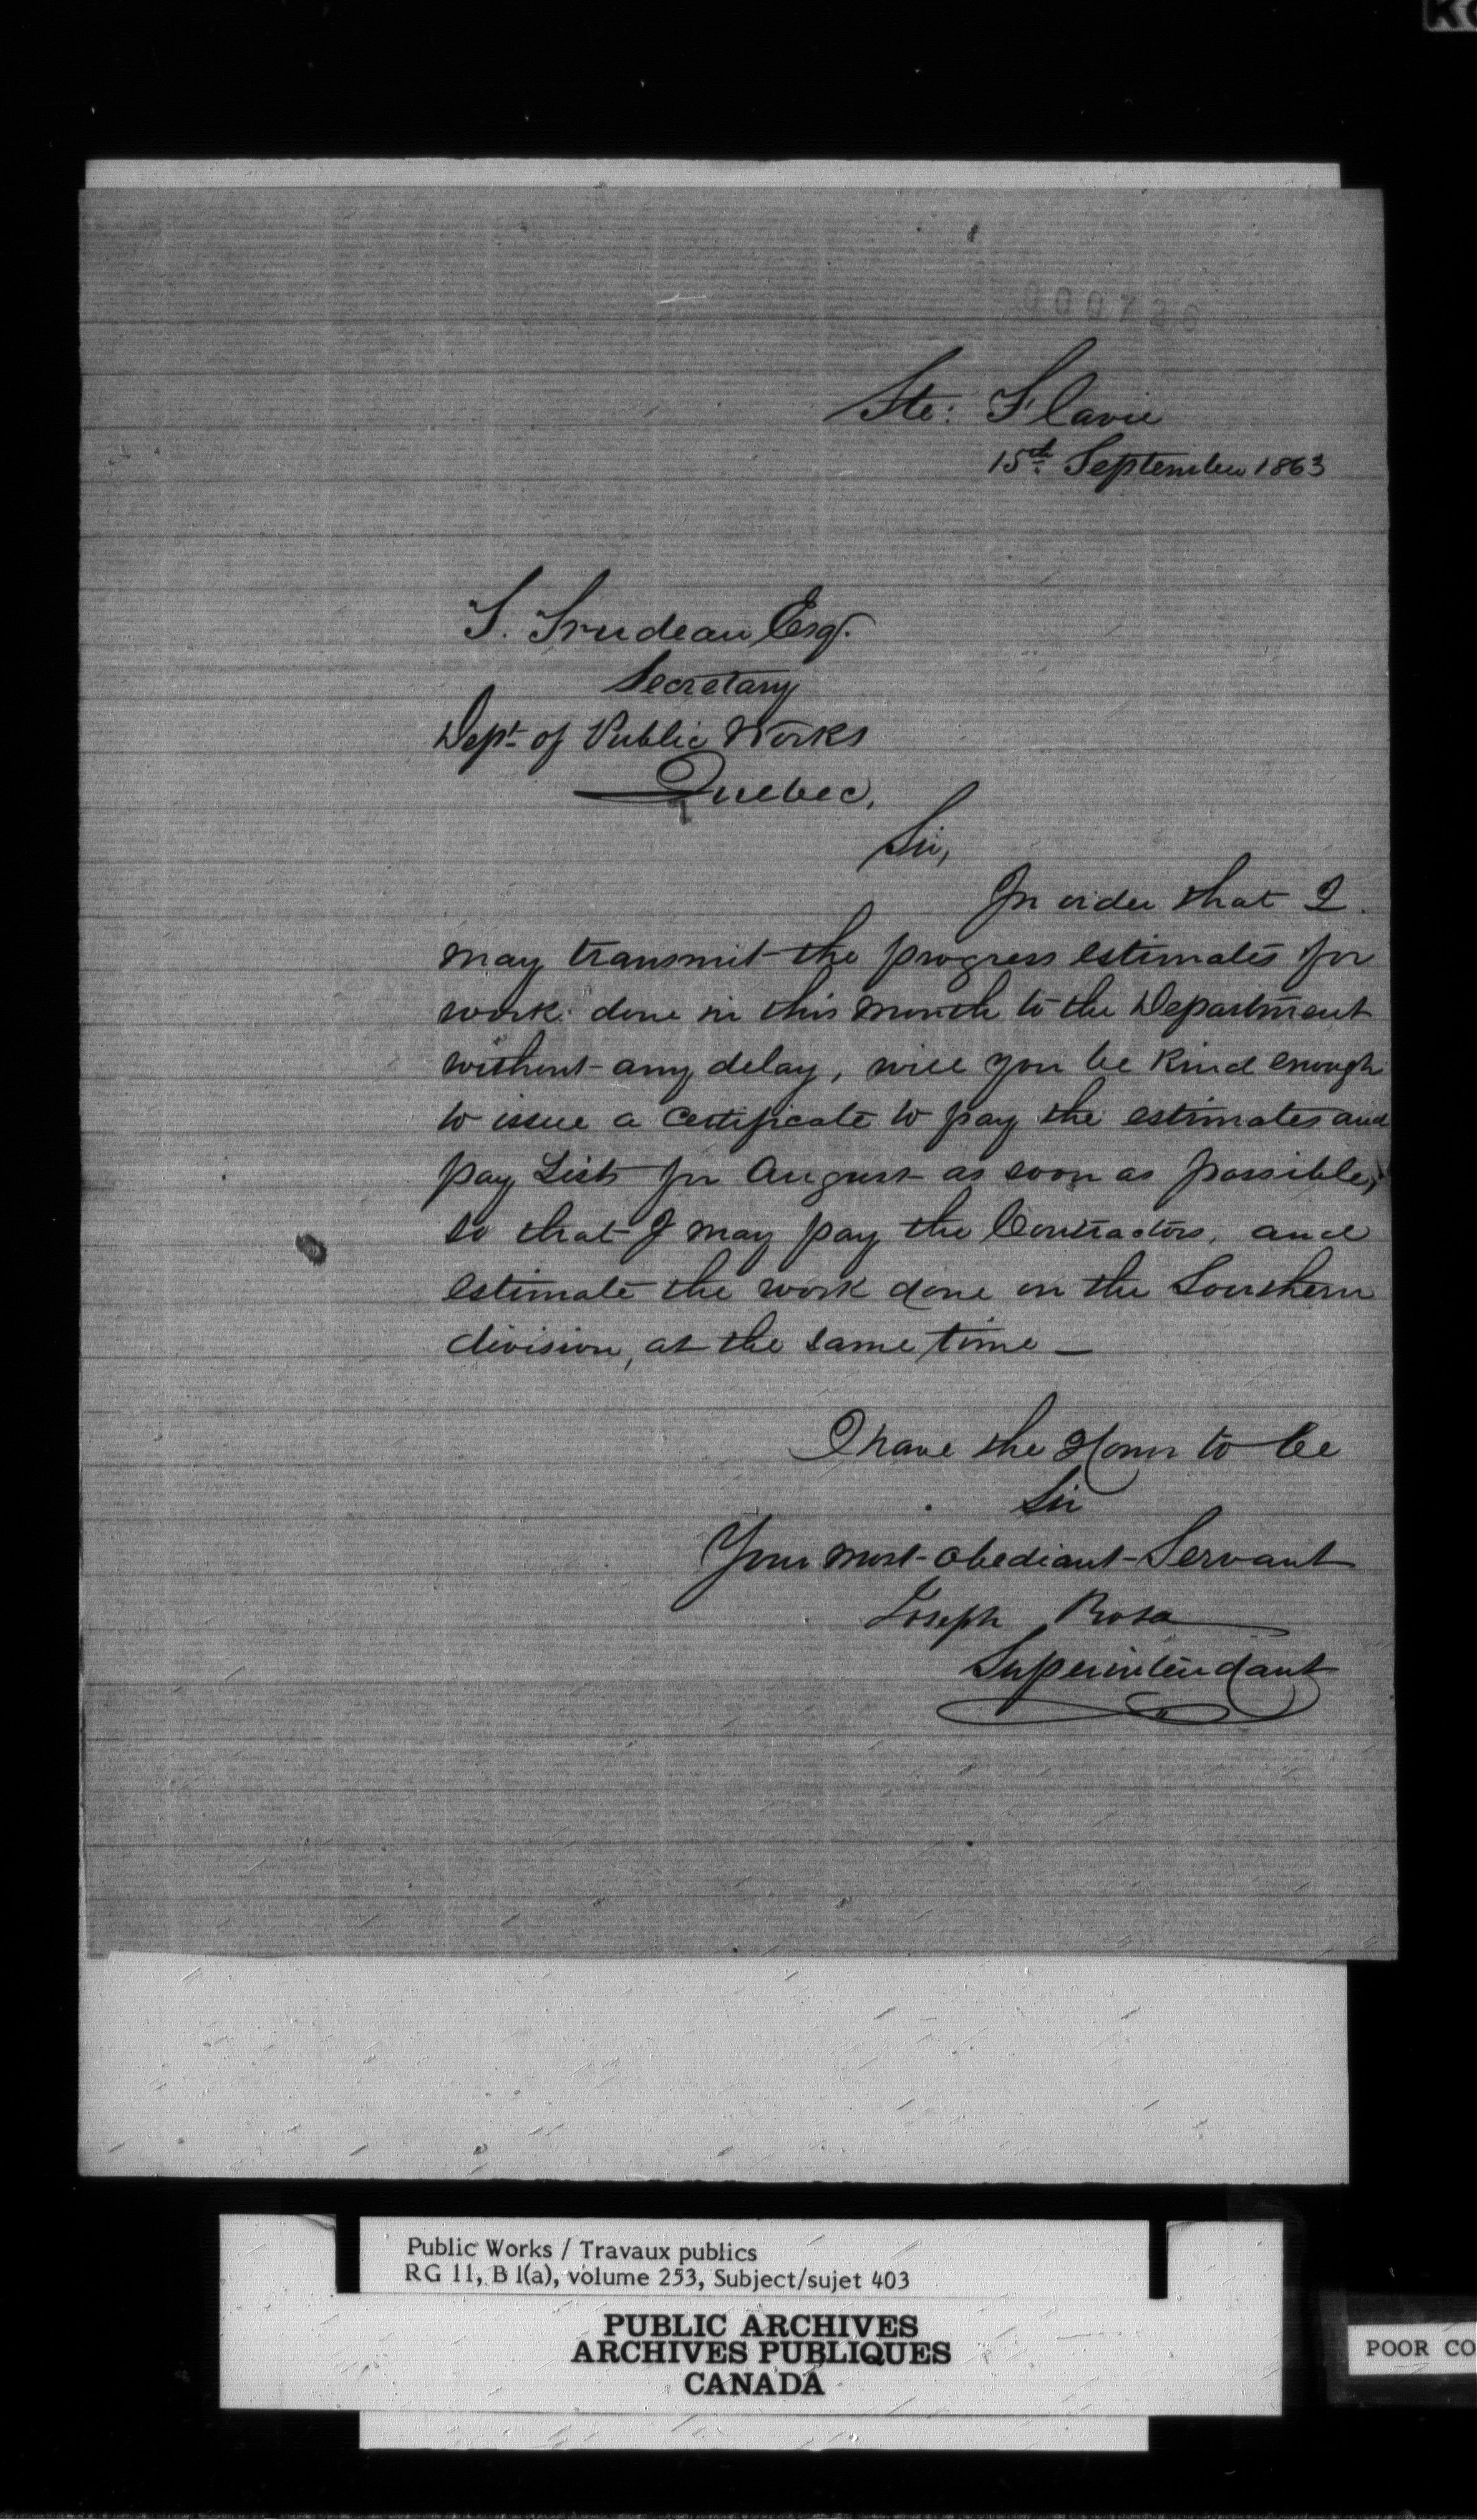 000726
Ste: Flavie
15th September 1863
T. Trudeau Esqr.
Secretary
Dept. of Public Works
Quebec,
Sir,
In order that I
may transmit the progress estimates for
work done in this month to the Department
without any delay, will you be kind enough
to issue a certificate to pay the estimates and
pay Lists for August as soon as possible,
so that I may pay the Contractors, and
estimate the work done on the Southern
division, at the same time —
I have the Honor to be
Sir
Your most obediant Servant
Joseph Rosa
Superintendant
Public Works / Travaux publics
RG 11, B 1(a), volume 253, Subject/sujet 403
PUBLIC ARCHIVES
ARCHIVES PUBLIQUES
CANADA
POOR CO